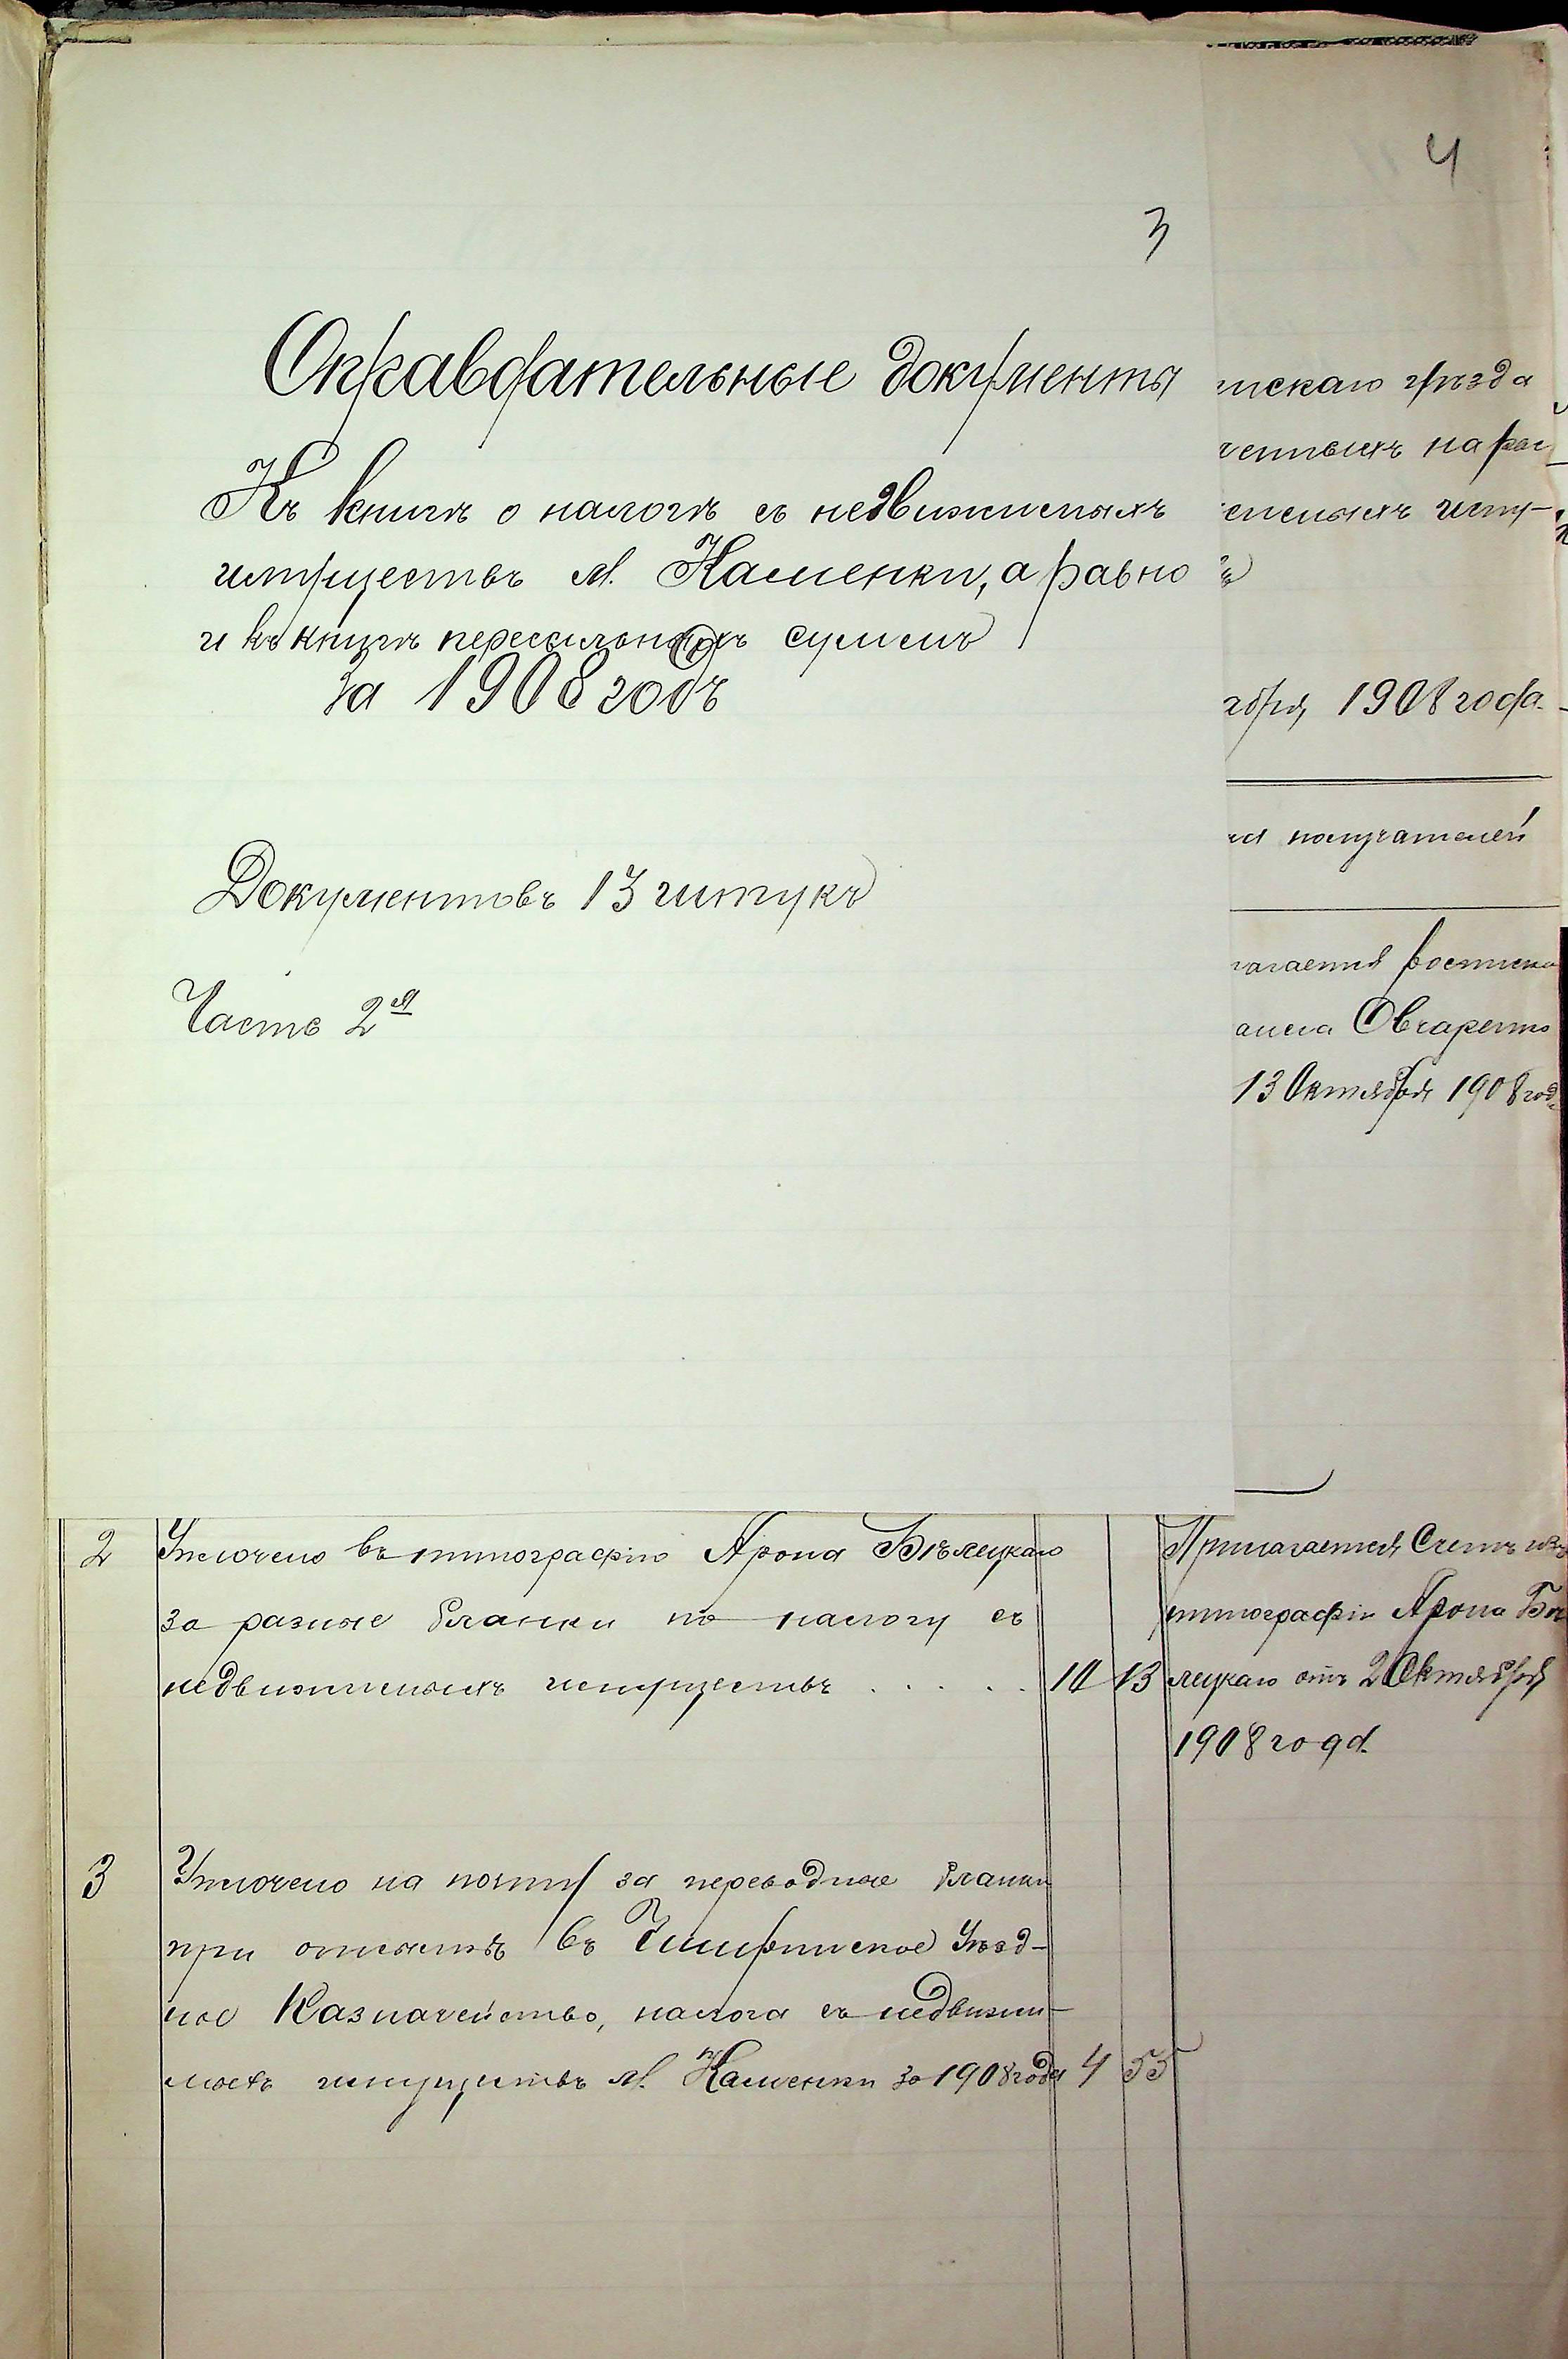 4
3
Оправдательные документы
Къ книгѣ о налогѣ съ недвижимыхъ
имуществъ М. Каменки, а равно
и къ книгѣ пересыльныхъ суммъ
за 1908 годъ
Документовъ 13 штукъ
Часть 2я
скаго уѣзда
ченныхъ на рас-
имыхъ иму-
ября 1908 года.
получателей
лагается росписка
Овчаренко
13 Октября 1908 года
2 Уплочено въ типографію Арона Бѣлецкаго
за разные бланки по налогу съ
недвижимыхъ имуществъ . . . . . 10 13
Прилагается Счетъ изъ
типографіи Арона Бѣ
лецкаго отъ 2 Октября
1908 года.
3 Уплочено на почту за переводные бланки
при отсылкѣ въ Чигиринское Уѣзд-
ное Казначейство, налога съ недвижи-
мыхъ имуществъ М. Каменки за 1908 года 4 55